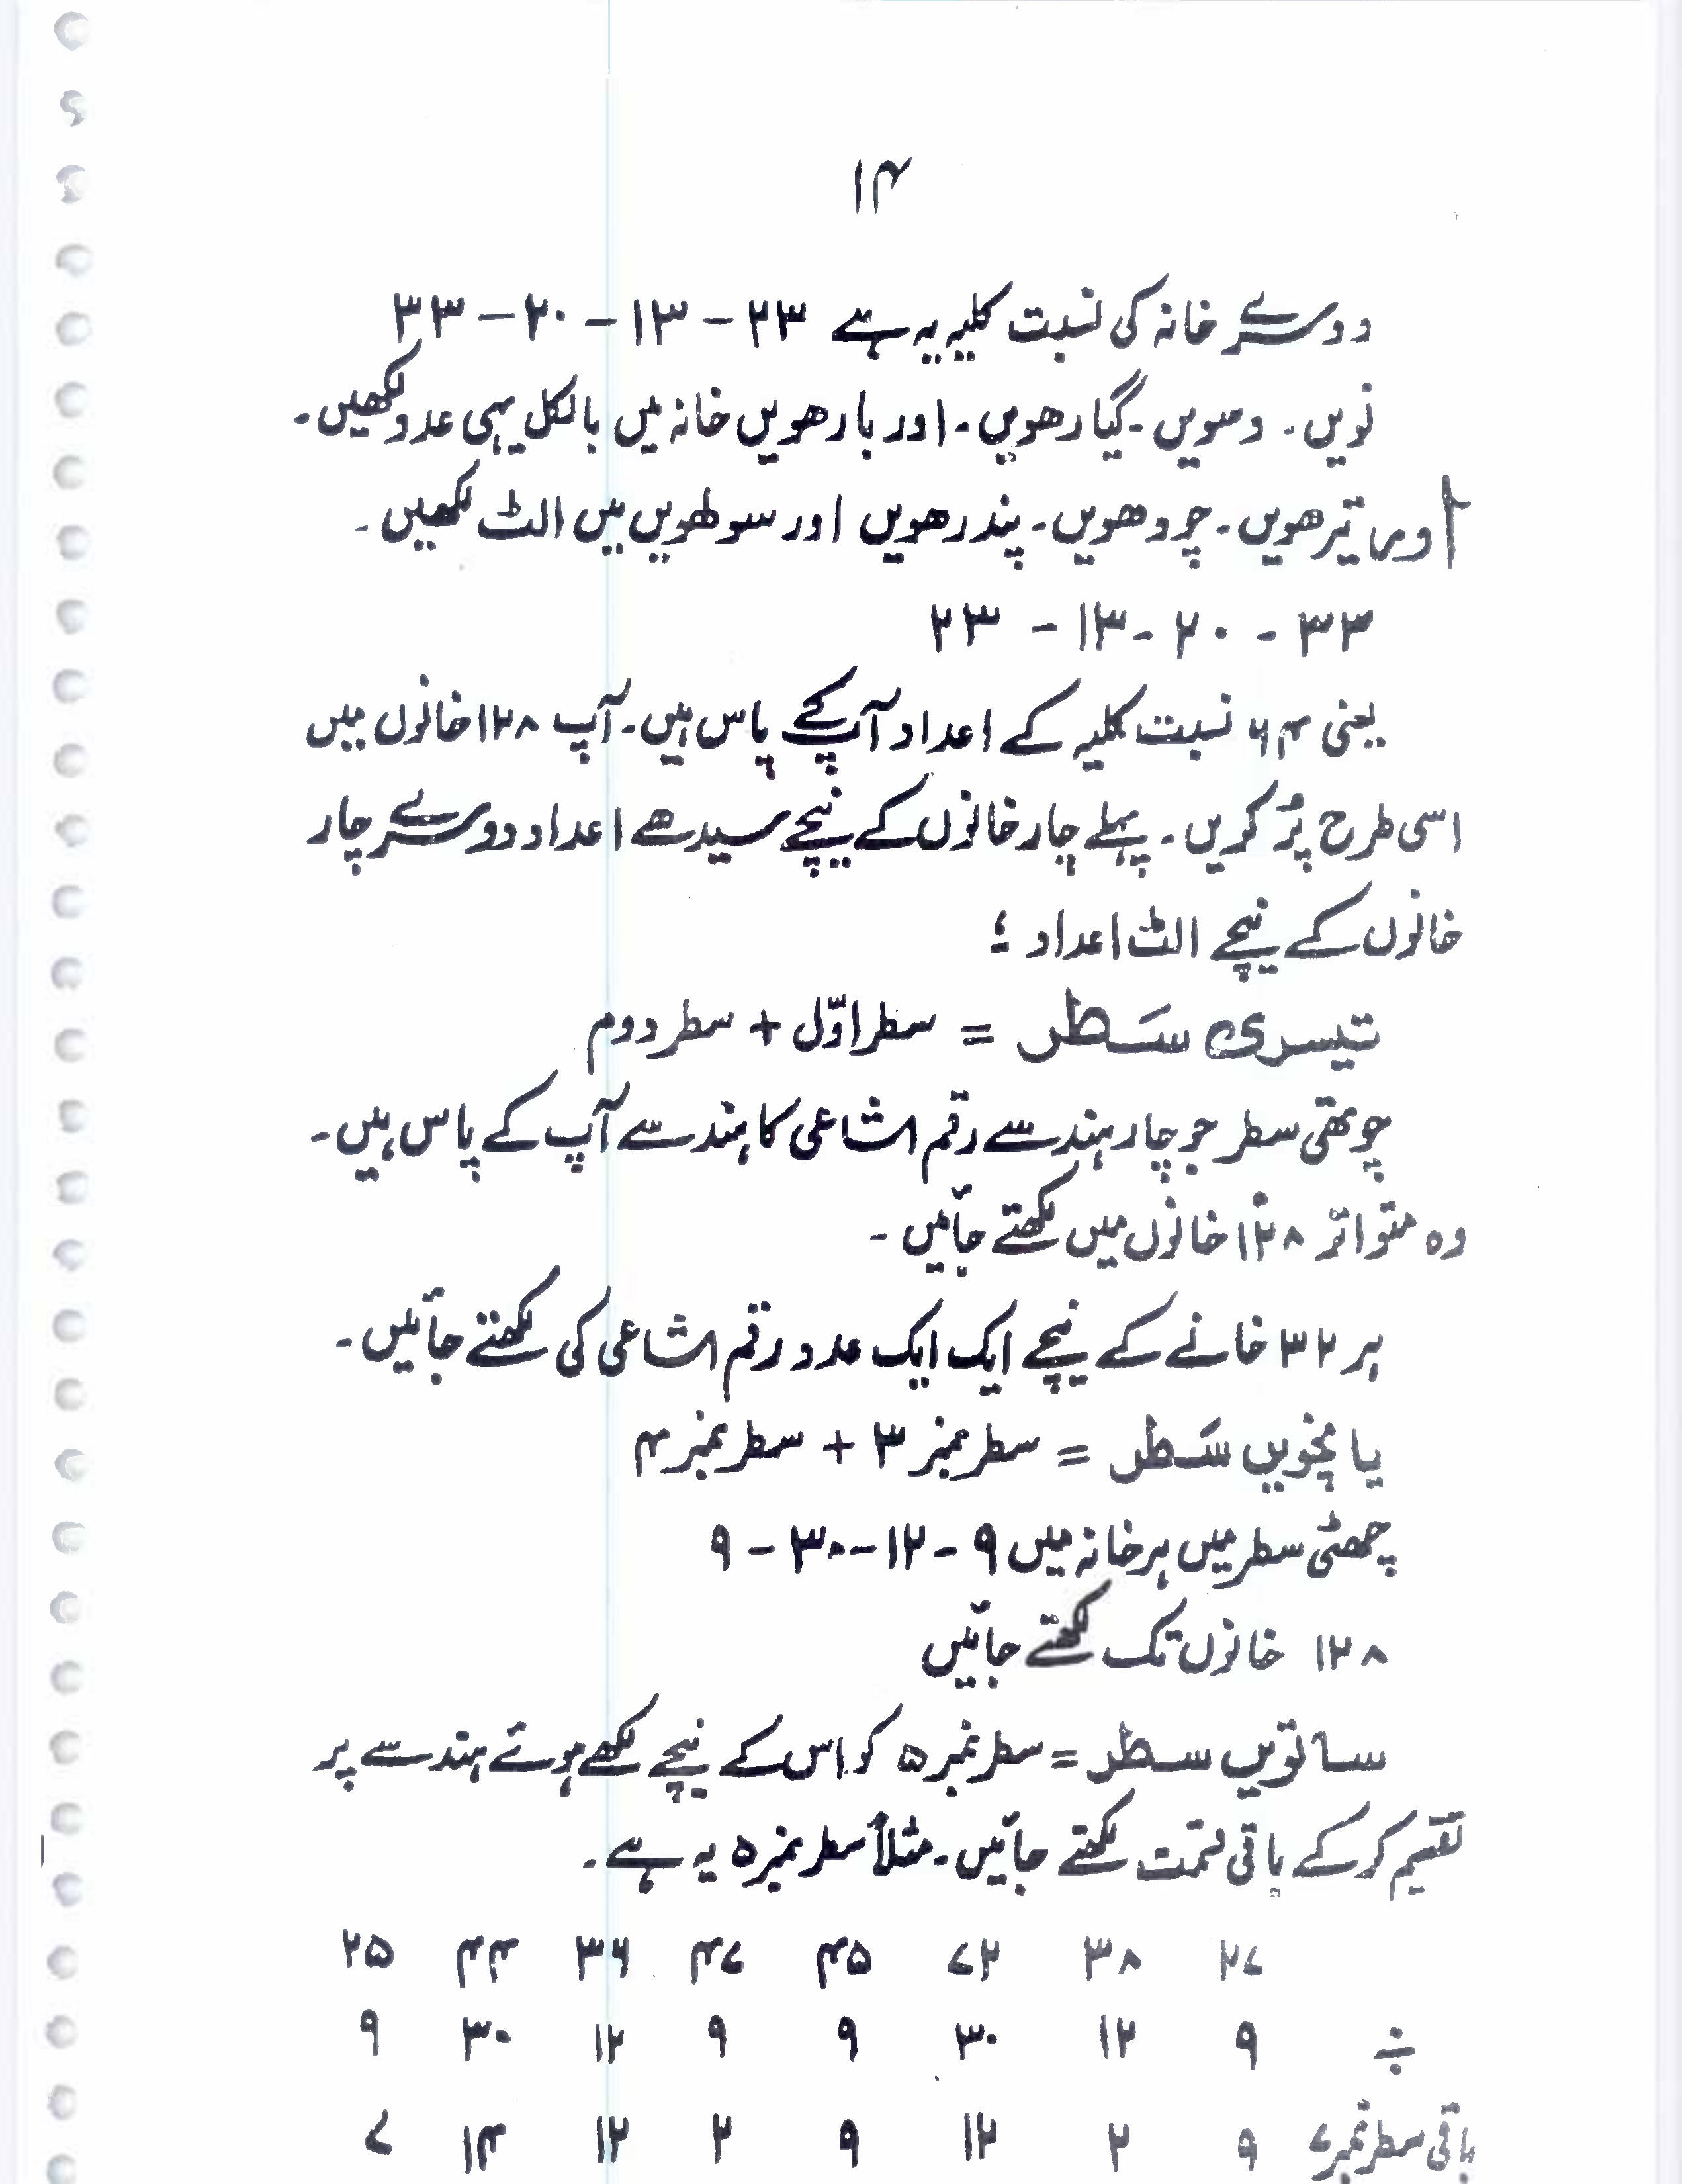 ۱۴
دوسرے خانہ کی نسبت کلیہ یہ ہے ۲۳ – ۱۳ – ۲۰ – ۳۳
نویں۔ دسویں۔ گیارھویں۔ اور بارھویں خانہ میں بالکل یہی عدد لکھیں۔
اور تیرھویں۔ چودھویں۔ پندرھویں اور سولھویں میں الٹ لکھیں۔
۳۳ - ۲۰ - ۱۳ - ۲۳
یعنی ۶۴ نسبت کلیہ کے اعداد آپ کے پاس ہیں۔ آپ ۱۲۸ خانوں میں
اسی طرح پُر کریں۔ پہلے چار خانوں کے نیچے سیدھے اعداد دوسرے چار
خانوں کے نیچے الٹ اعداد ؛
تیسری سَطر = سطر اوّل + سطر دوم
چوتھی سطر جو چار ہندسے رقم الشاعی کا ہندسے آپ کے پاس ہیں۔
وہ متواتر ۱۲۸ خانوں میں لکھتے جائیں۔
ہر ۳۲ خانے کے نیچے ایک ایک عدد رقم الشاعی کی لکھتے جائیں۔
پانچویں سَطر = سطر نمبر ۳ + سطر نمبر ۴
چھٹی سطر میں ہر خانہ میں ۹ - ۱۲ - ۳۰ - ۹
۱۲۸ خانوں تک لکھتے جائیں
ساتویں سطر = سطر نمبر ۵ کو اس کے نیچے لکھے ہوئے ہندسے پر
تقسیم کر کے باقی قیمت لکھتے جائیں۔ مثلاً سطر نمبر ۵ یہ ہے۔
۲۷ ۳۸ ۷۲ ۴۵ ۴۷ ۳۶ ۴۴ ۲۵
÷ ۹ ۱۲ ۳۰ ۹ ۹ ۱۲ ۳۰ ۹
باقی سطر نمبر ۷ ۹ ۲ ۱۲ ۹ ۲ ۱۲ ۱۴ ۷